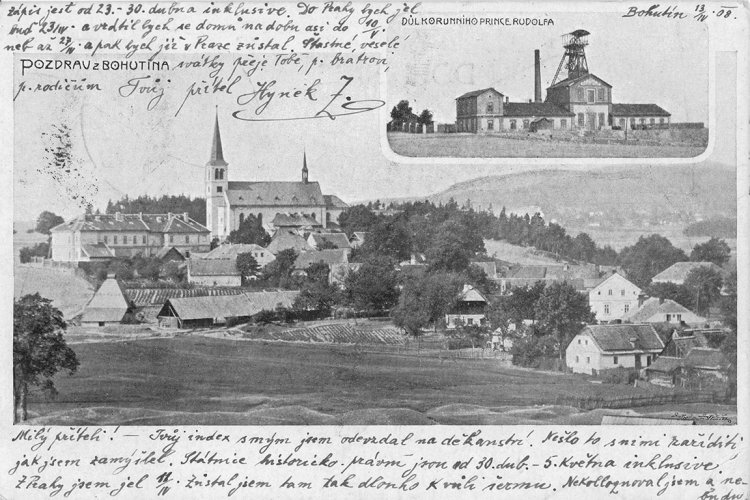 zápis jest od 23.-30. dubna inklusive. Do Prahy bych jel
buď 23/IV a vrátil bych se domů na dobu asi do 10/V.
neb až 27/IV a pak bych již v Praze zůstal. Šťastné, veselé
svátky přeje Tobě, p. bratrovi,
p. rodičům Tvůj přítel Hynek Ž.
Bohutín 13/IV 08.
POZDRAV z BOHUTÍNA
DŮL KORUNNÍHO PRINCE RUDOLFA
Milý příteli! – Tvůj index s mým jsem odevzdal na děkanství. Nešlo to s nimi zaříditi
jak jsem zamýšlel. Státnice historicko-právní jsou od 30. dub. - 5. května inklusive.
Z Prahy jsem jel 11/IV. Zůstal jsem tam tak dlouho kvůli šermu. Nekolloqnoval jsem a ne-
budu